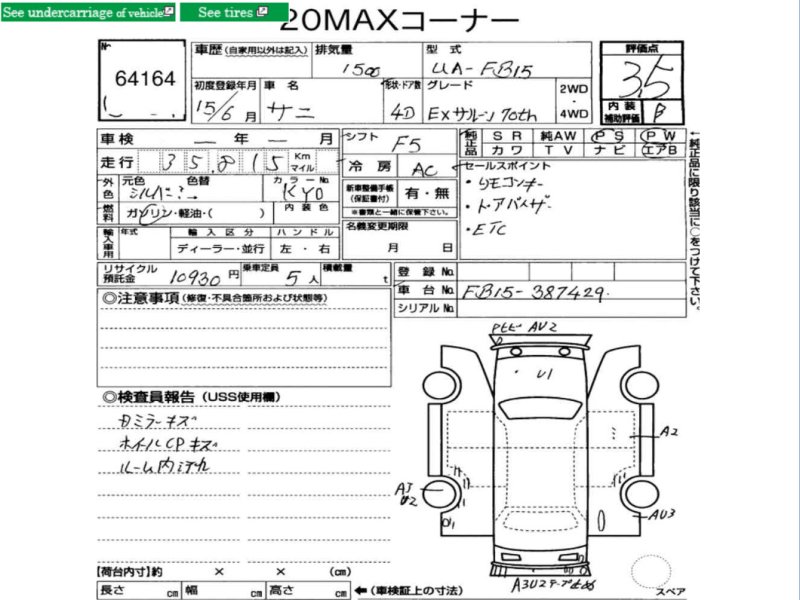 See undercarriage of vehicle
See tires
20MAXコーナー
No
64164
車歴 (自家用以外は記入)
排気量
1500
型式
UA-FB15
評価点
3.5
初度登録年月
15/6月
車名
サニ
形状・ドア数
4D
グレード
EXサルーン 70th
2WD
・
4WD
内装
補助評価
B
車検 年 月
シフト
F5
純正品
SR 純AW PS PW
カワ TV ナビ エアB
走行 35,815 Km マイル
冷房
AC
セールスポイント
・リモコンキー
・ドアバイザー
・ETC
外色
元色
シルバー
色替
カラーNo
KY0
新車整備手帳
(保証書付)
有・無
※書類と一緒に保管下さい。
燃料
ガソリン・軽油・( )
内装色
名義変更期限
月 日
輸入車用
年式
輸入区分
ディーラー・並行
ハンドル
左・右
リサイクル預託金
10930円
乗車定員
5人
積載量
t
登録No.
車台No.
FB15-387429
シリアルNo.
←純正品に限り該当に○をつけて下さい。
◎注意事項 (修復・不具合箇所および状態等)
◎検査員報告 (USS使用欄)
Dミラーキズ
ホイールCPキズ
ルーム内汚れ
AU2
U1
A2
U2
AU3
A3U2
【荷台内寸】約 × × (cm)
長さ cm 幅 cm 高さ cm
←(車検証上の寸法)
スペア